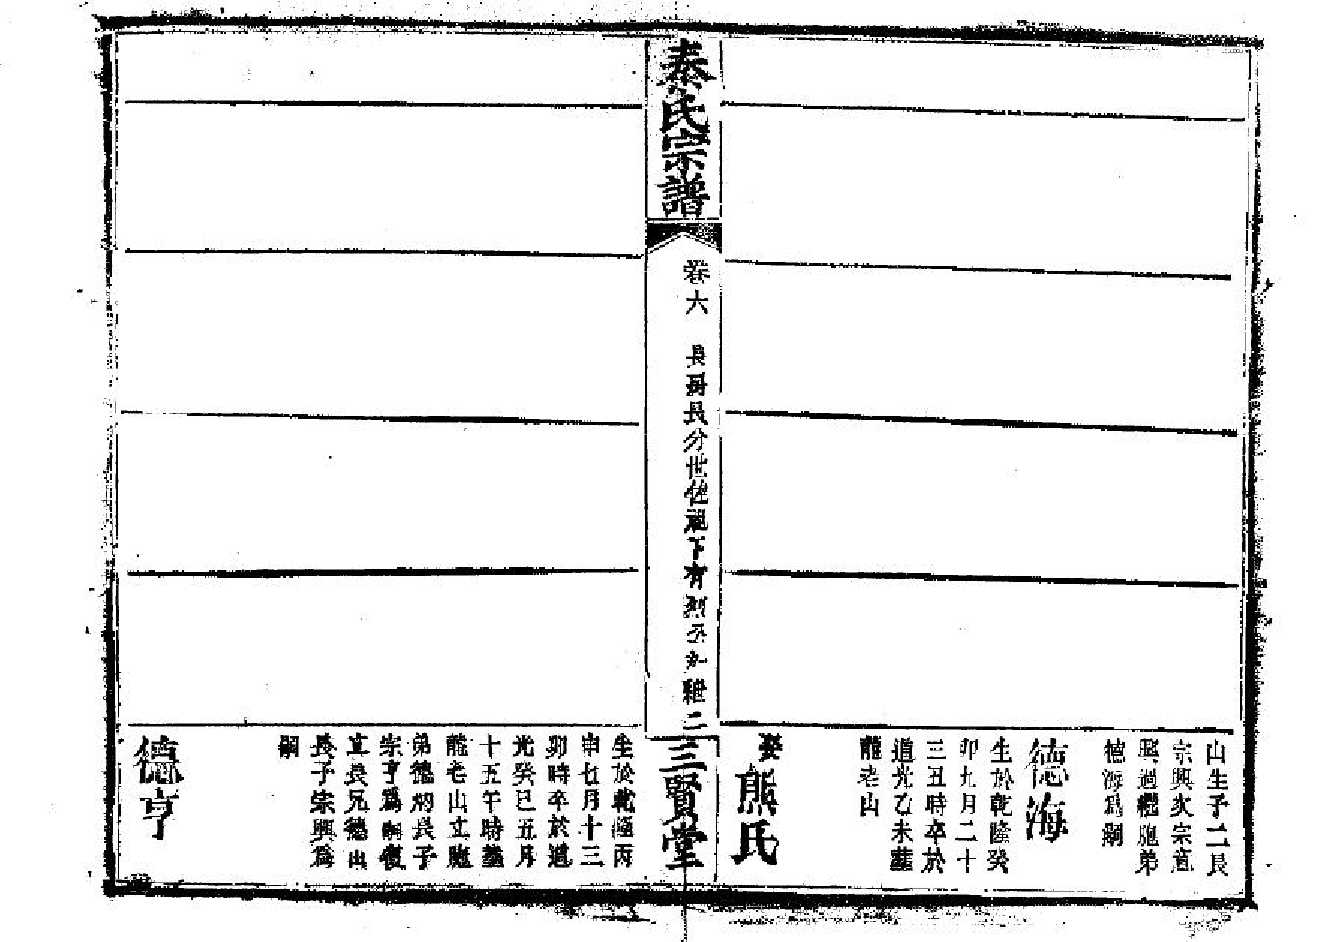 山生子二長
宗興次宗意
興過繼胞弟
德海爲嗣
德海
生於乾隆癸
卯九月二十
三丑時卒於
道光乙未葬
龍老山
娶熊氏
秦氏宗譜
卷六
長房長分世佐祖下有烈公九
二
三賢堂
生於乾隆丙
申七月十三
卯時卒於道
光癸巳五月
十五午時葬
龍老山立胞
弟德炳長子
宗亨爲嗣復
立長兄德山
長子宗興爲
嗣
德亨